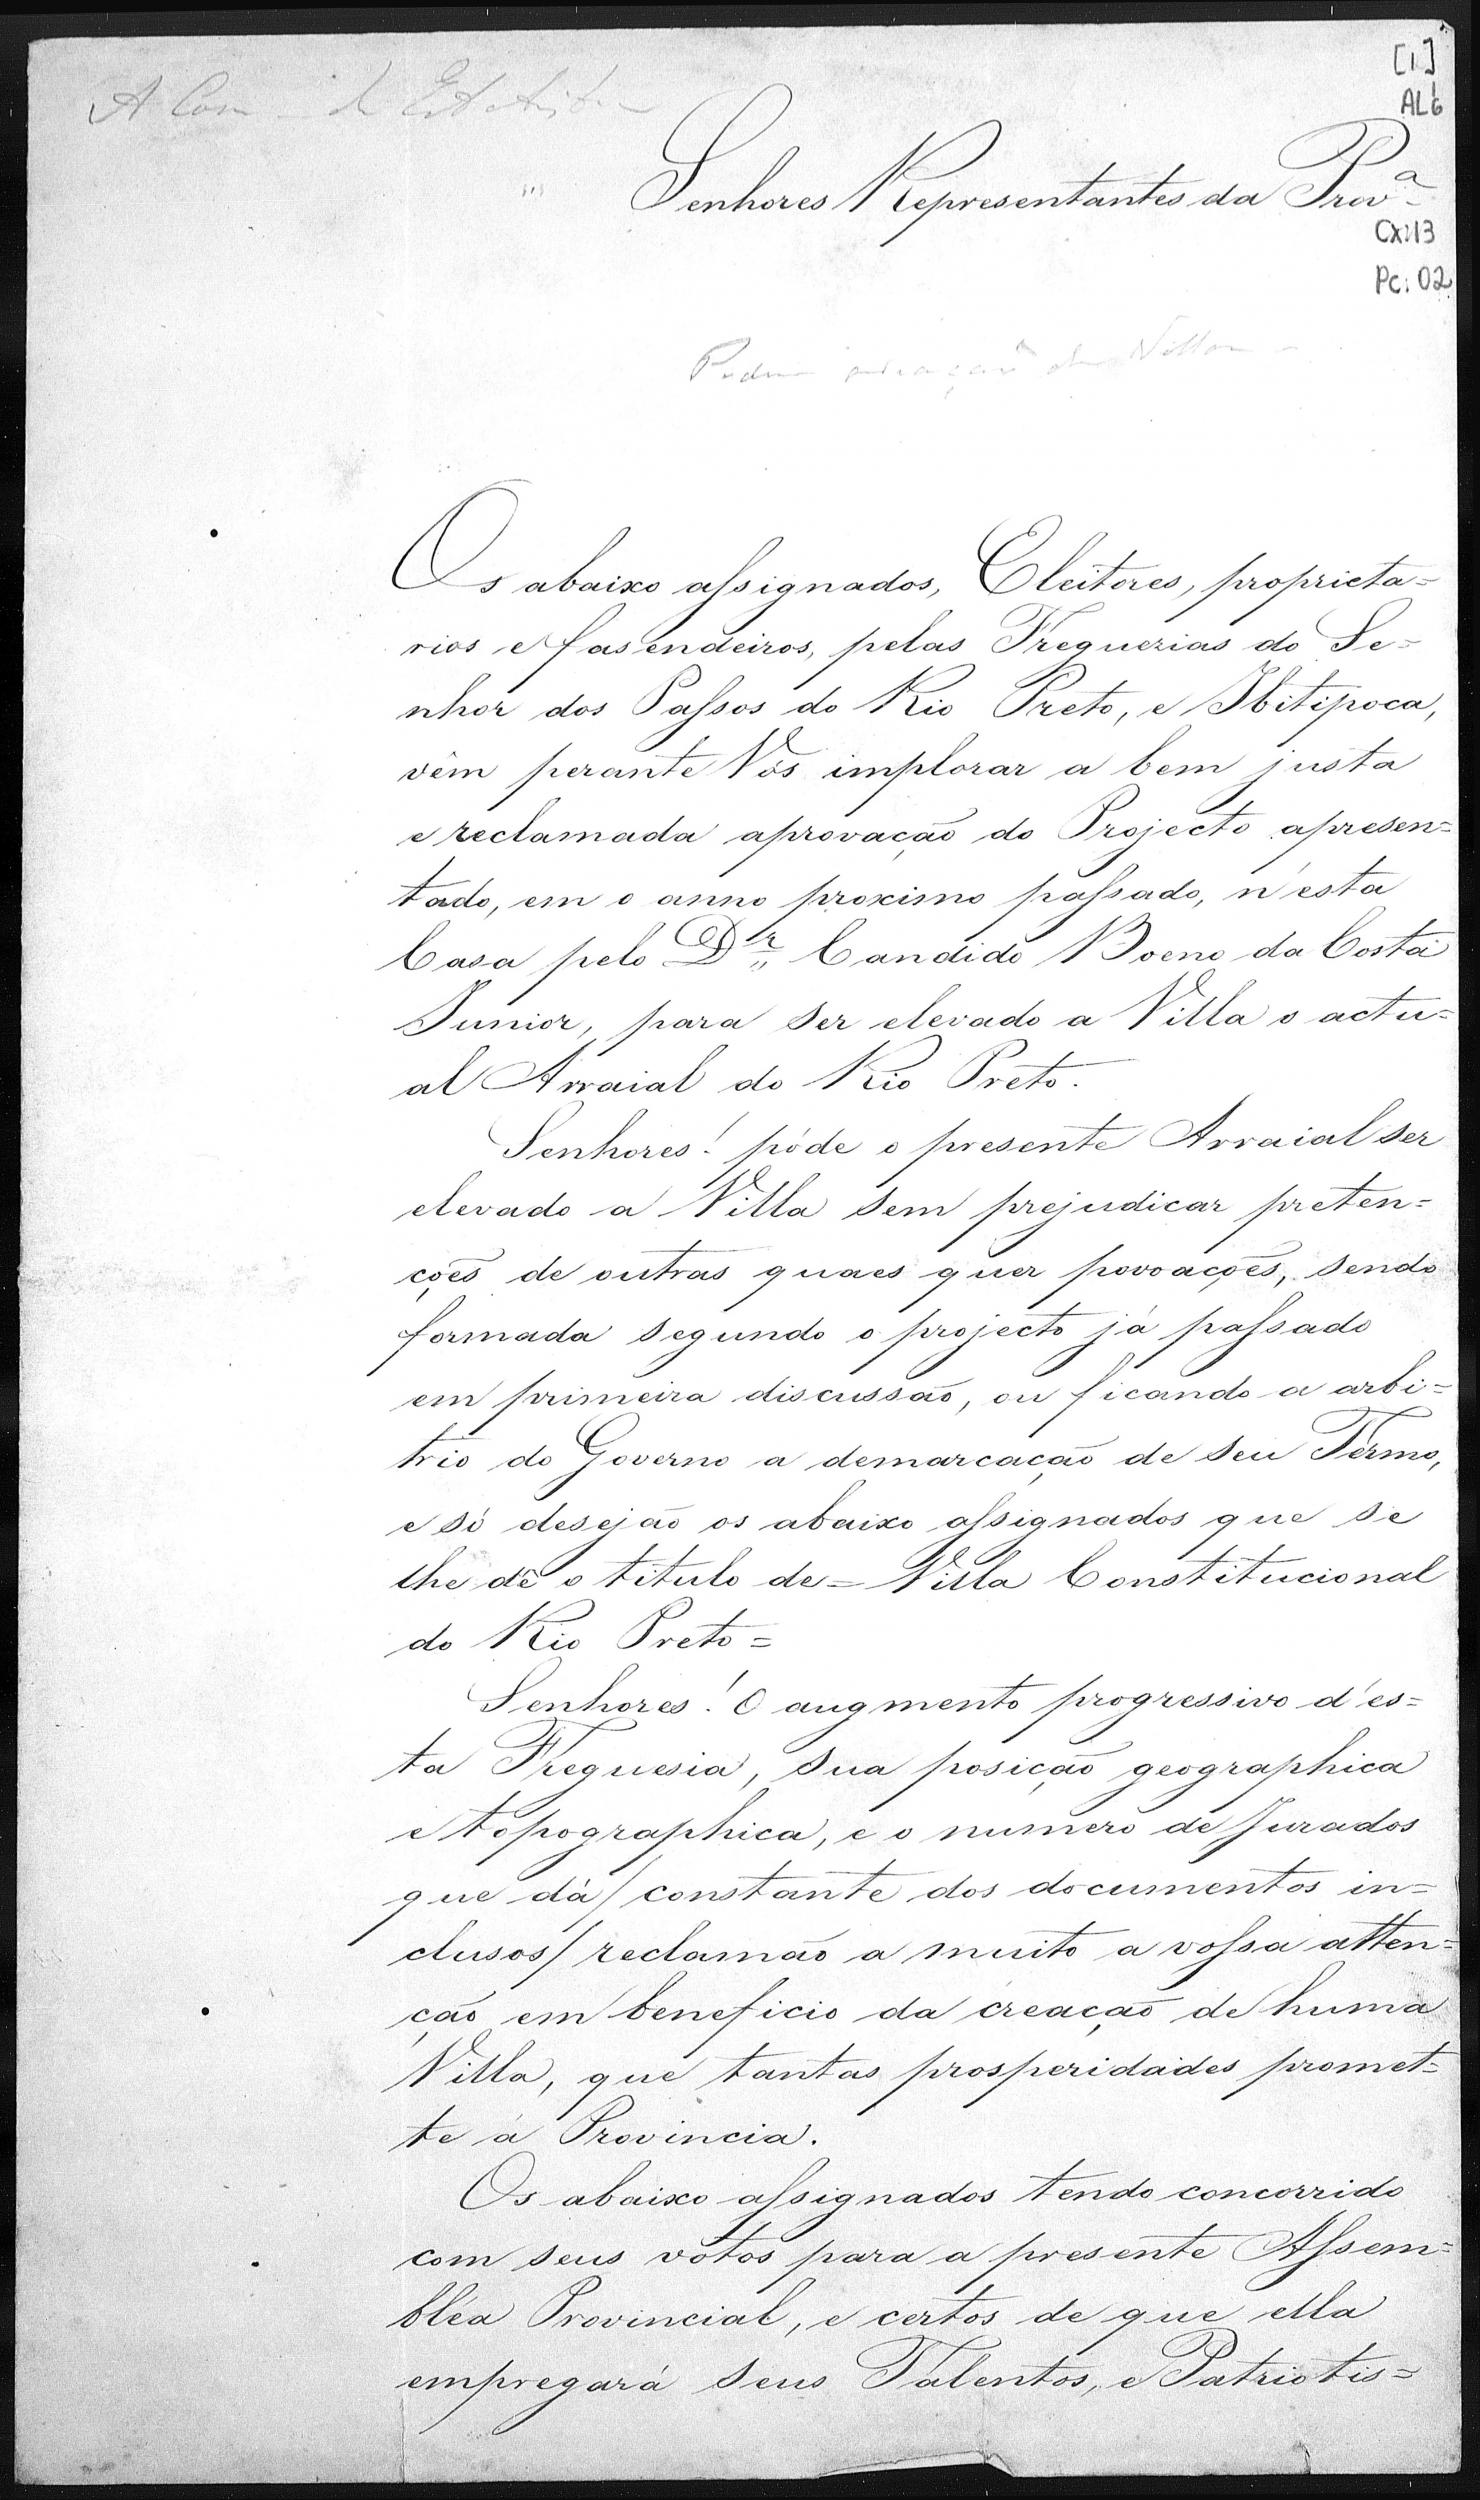 [1]
AL6
A Com de Estatistica
Senhores Representantes da Prov.ª
Cx:13
Pc: 02
Pedem creação de Villa
Os abaixo assignados, Eleitores, proprieta=
rios e fasendeiros, pelas Freguezias do Se=
nhor dos Passos do Rio Preto, e Ibitipoca,
vêm perante Vós implorar a bem justa
e reclamada aprovação do Projecto apresen=
tado, em o anno proximo passado, n'esta
Casa pelo Dr. Candido Boeno da Costa
Junior, para ser elevado a Villa o actu=
al Arraial do Rio Preto.
Senhores! póde o presente Arraial ser
elevado a Villa sem prejudicar preten=
ções de outras quaes quer povoações, sendo
formada segundo o projecto já passado
em primeira discussão, ou ficando a arbi=
trio do Governo a demarcação de seu Termo,
e só desejão os abaixo assignados que se
lhe dê o titulo de = Villa Constitucional
do Rio Preto =
Senhores! O augmento progressivo d'es=
ta Freguesia, sua posição geographica
e topographica, e o numero de Jurados
que dá / constante dos documentos in=
clusos / reclamão a muito a vossa atten=
ção em beneficio da creação de huma
Villa, que tantas prosperidades promet=
te á Provincia.
Os abaixo assignados tendo concorrido
com seus votos para a presente Assem=
bléa Provincial, e certos de que ella
empregará seus Talentos, e Patriotis=